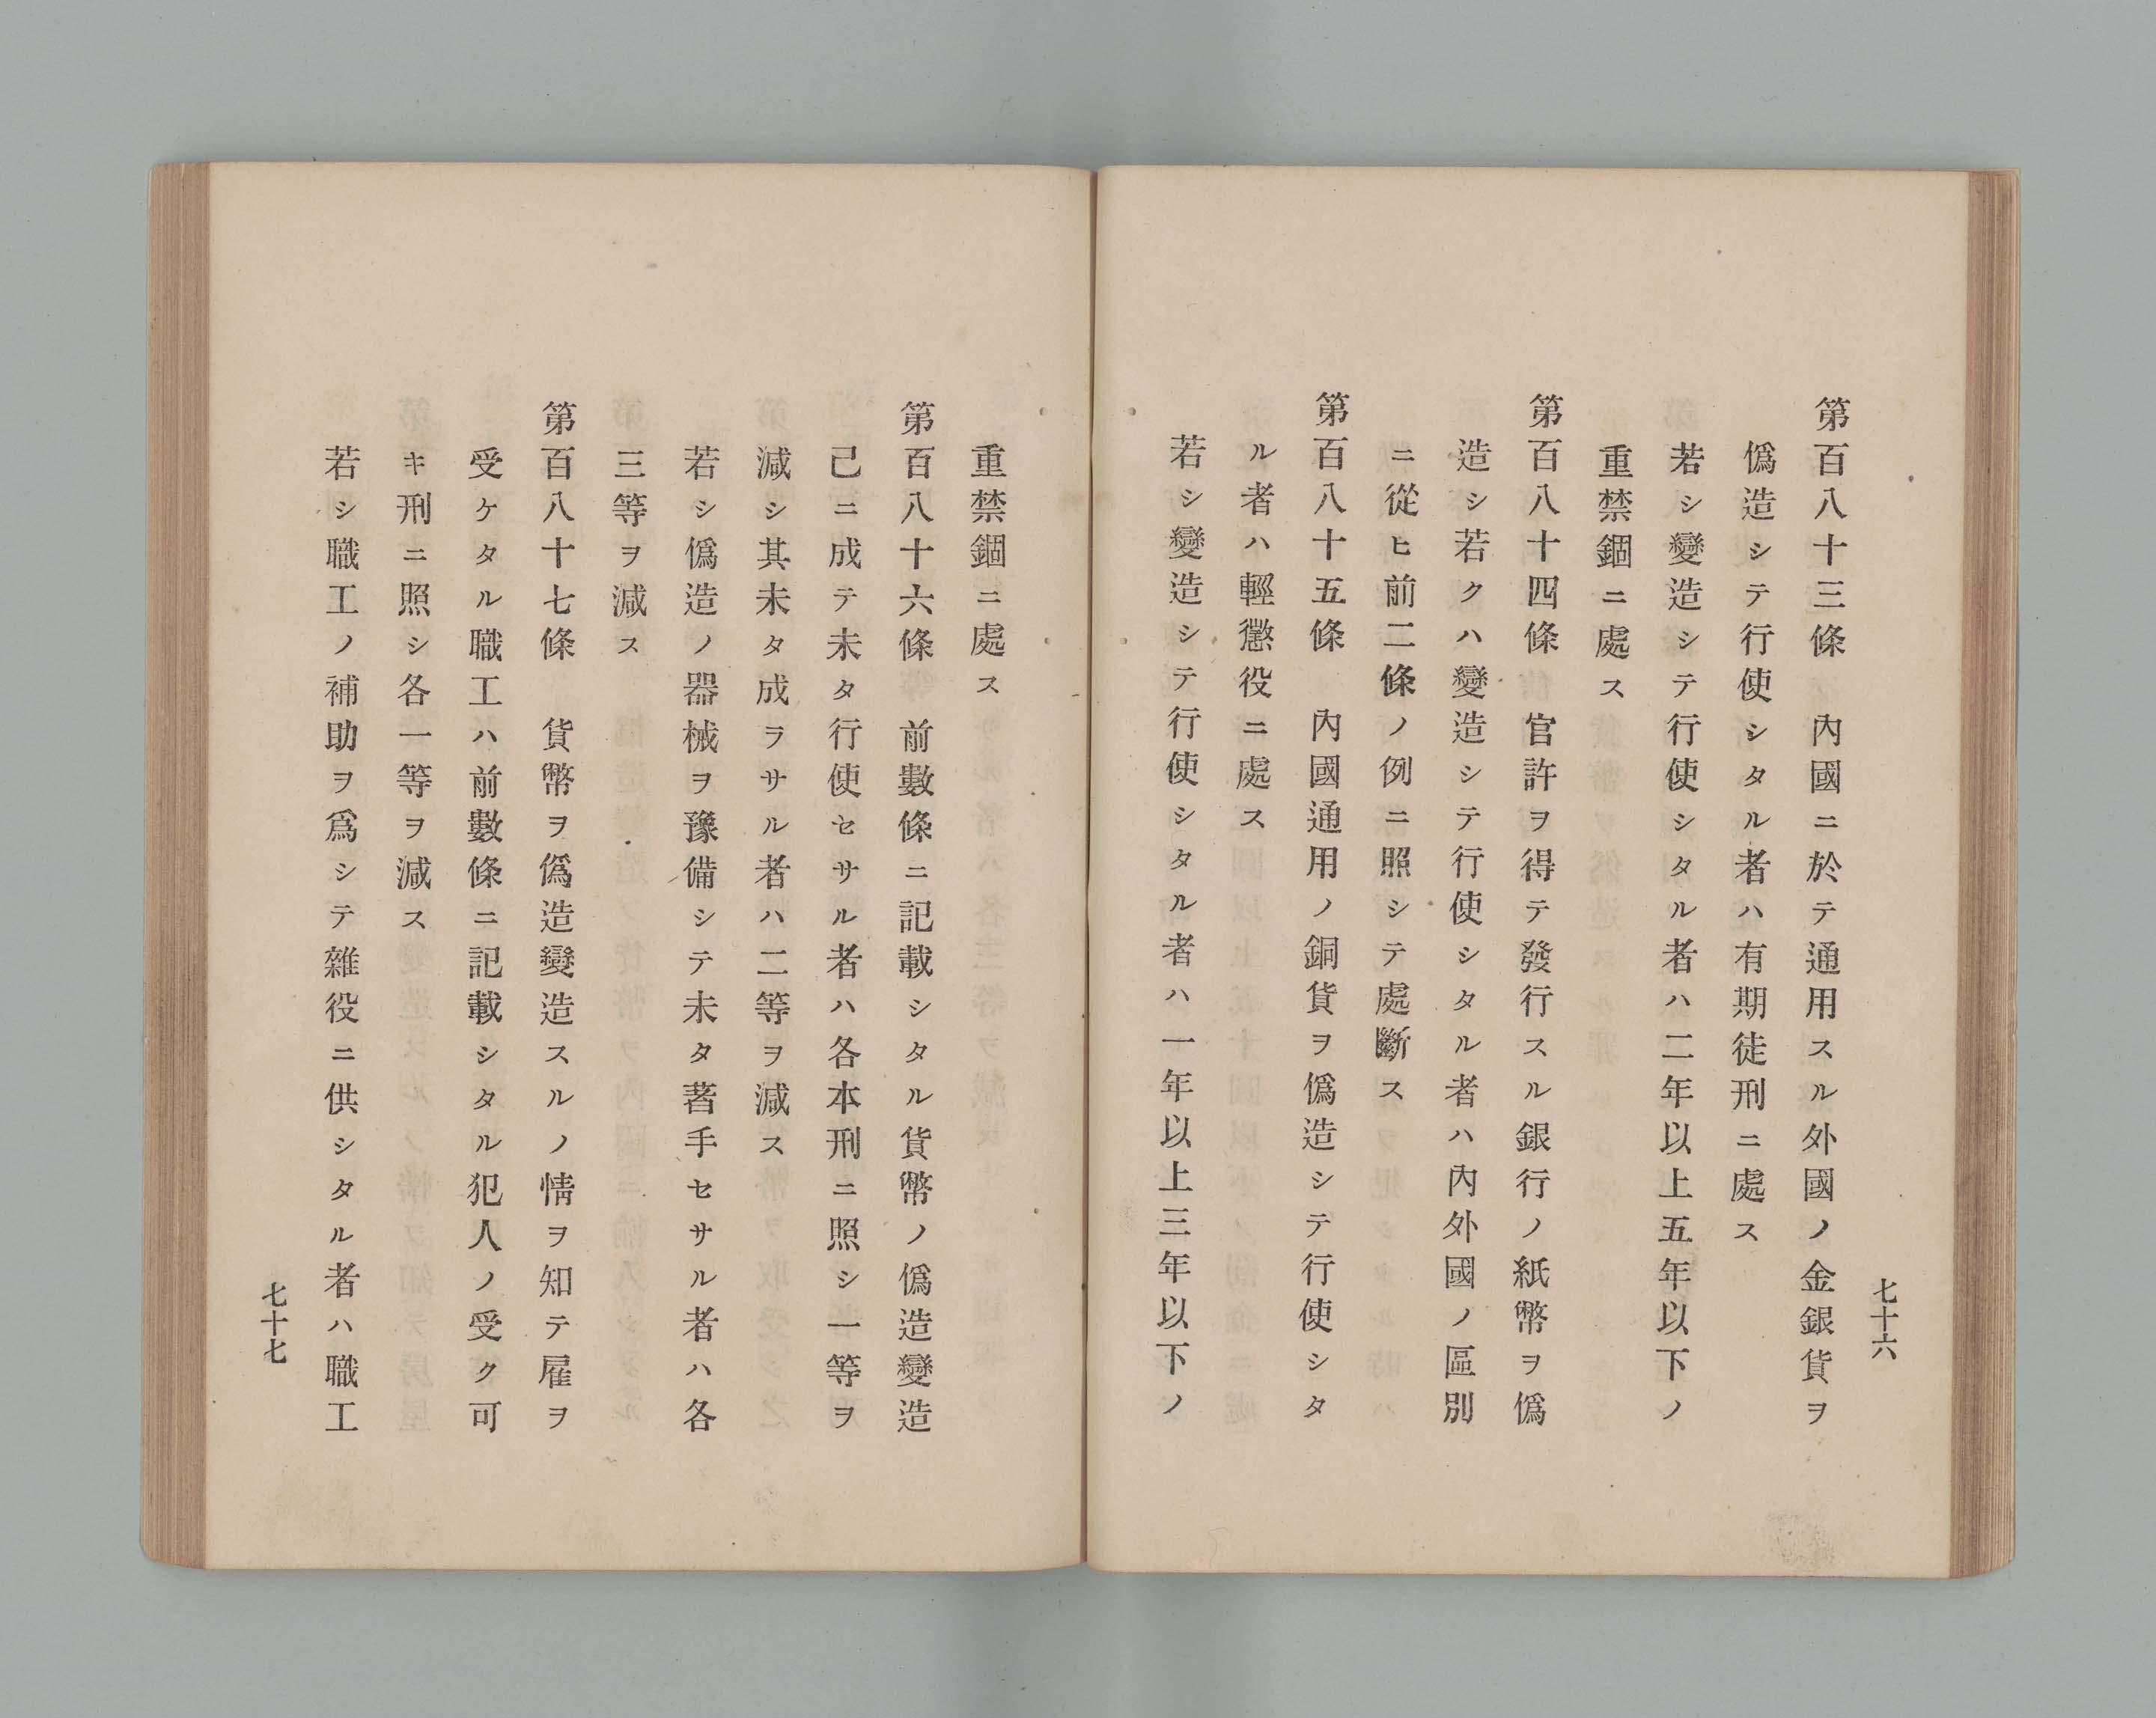 第百八十三條　內國ニ於テ通用スル外國ノ金銀貨ヲ
僞造シテ行使シタル者ハ有期徒刑ニ處ス
若シ變造シテ行使シタル者ハ二年以上五年以下ノ
重禁錮ニ處ス
第百八十四條　官許ヲ得テ發行スル銀行ノ紙幣ヲ僞
造シ若クハ變造シテ行使シタル者ハ內外國ノ區別
ニ從ヒ前二條ノ例ニ照シテ處斷ス
第百八十五條　內國通用ノ銅貨ヲ僞造シテ行使シタ
ル者ハ輕懲役ニ處ス
若シ變造シテ行使シタル者ハ一年以上三年以下ノ
七十六
重禁錮ニ處ス
第百八十六條　前數條ニ記載シタル貨幣ノ僞造變造
已ニ成テ未タ行使セサル者ハ各本刑ニ照シ一等ヲ
減シ其未タ成ラサル者ハ二等ヲ減ス
若シ僞造ノ器械ヲ豫備シテ未タ著手セサル者ハ各
三等ヲ減ス
第百八十七條　貨幣ヲ僞造變造スルノ情ヲ知テ雇ヲ
受ケタル職工ハ前數條ニ記載シタル犯人ノ受ク可
キ刑ニ照シ各一等ヲ減ス
若シ職工ノ補助ヲ爲シテ雜役ニ供シタル者ハ職工
七十七